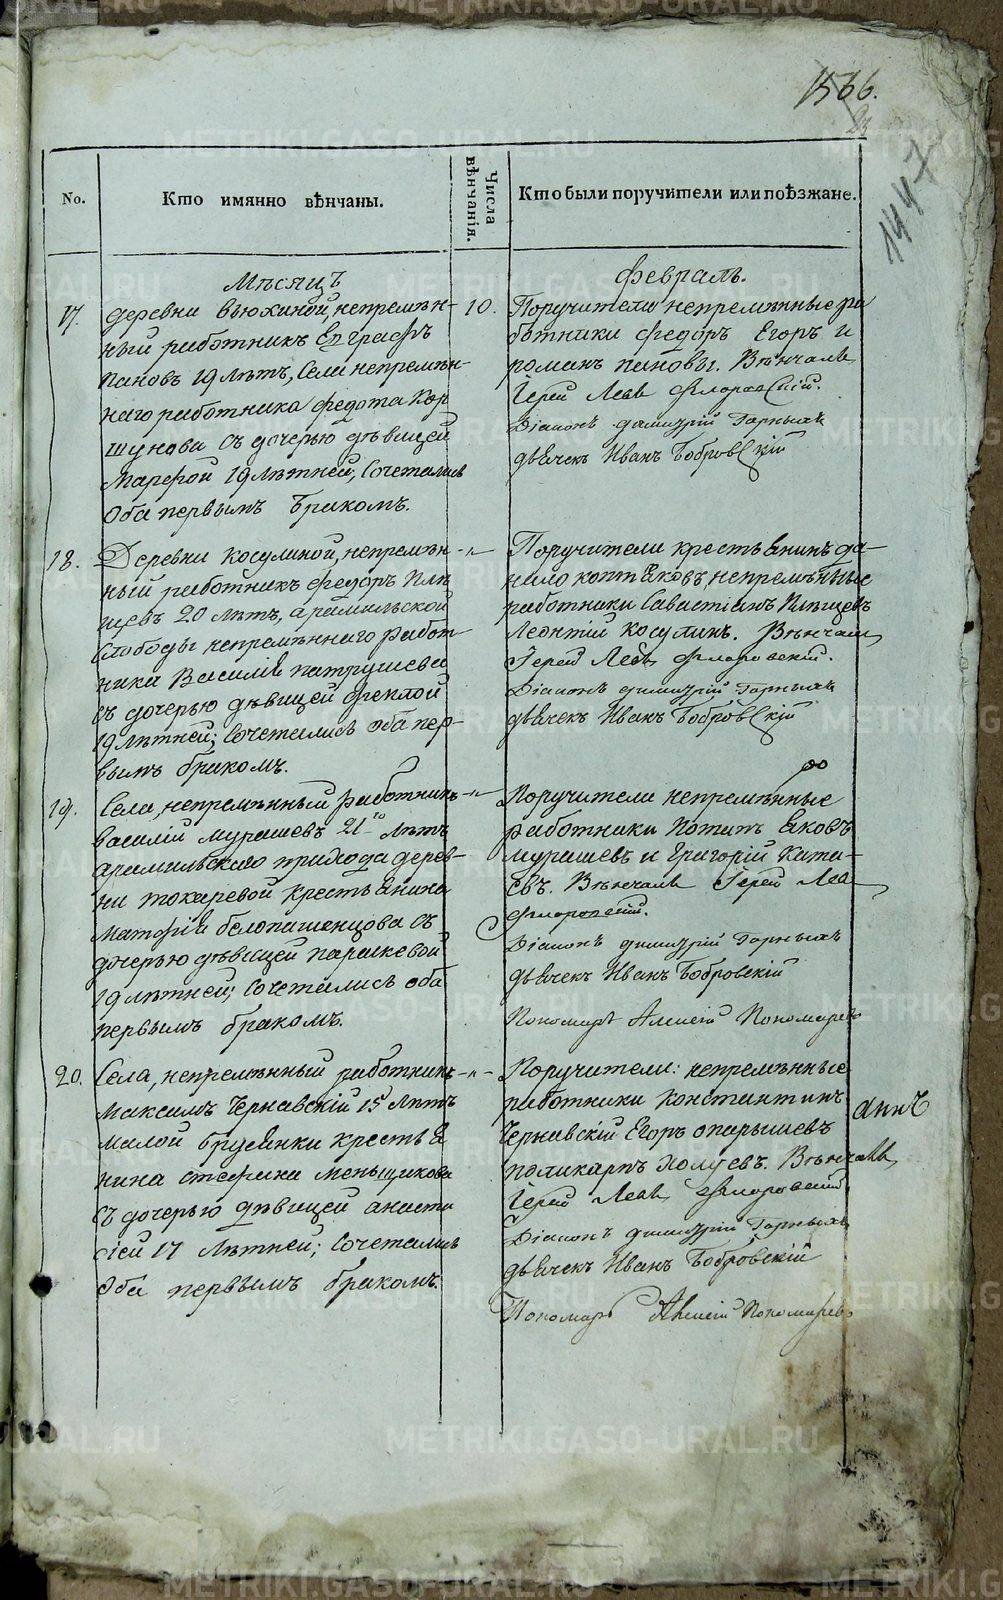 1566.
1447
No.
Кто имянно вѣнчаны.
Числа вѣнчанія.
Кто были поручители или поѣзжане.
Мѣсяцъ
Февраль.
17.
деревни Вьюхиной, непремѣн-
ный работникъ Евграфъ
Пановъ 19 лѣтъ, Села непремѣн-
наго работника Федота Кор
шунова Съ дочерью дѣвицей
Марфой 19 лѣтней, Сочетались
Оба первымъ бракомъ.
10.
Поручители непремѣнные ра
ботники Федоръ Егоръ и
романъ пановы. Вѣнчалъ
Іерей Левъ Флоровскій.
Діаконъ димитрій Горныхъ
дьячекъ Иванъ Бобровскій
18.
Деревни Косулиной, непремѣн
ный работникъ Федоръ Плѣ
щевъ 20 лѣтъ, арамильской
Слободы непремѣннаго работ
ника Василія патрушева
съ дочерью дѣвицей Феклой
19 лѣтней; Сочетались Оба пер-
вымъ бракомъ.
-"-
Поручители крестьянинъ да-
нило коптяковъ, непремѣнные
работники Савастіянъ Плѣщевъ
Леонтій Косулинъ. Вѣнчалъ
Іерей Левъ Флоровскій.
Діаконъ димитрій Горныхъ
дьячекъ Иванъ Бобровскій
19.
Села, непремѣнный работникъ
Василій мурашевъ 21го лѣтъ
арамильскаго прихода дерев-
ни токаревой крестьянина
матфія белопашенцова съ
дочерью дѣвицей параскевой
19 лѣтней; Сочетались оба
первымъ бракомъ.
-"-
Поручители непремѣнные
работники Потапъ Яковъ
мурашевъ и Григорій Катa-
евъ. Вѣнчалъ Іерей Левъ
Флоровскій.
Діаконъ димитрій Горныхъ
дьячекъ Иванъ Бобровскій
Пономарь Алексій Пономаревъ
20.
Села, непремѣнный работникъ
Максимъ Чернавскій 15 лѣтъ
малой брусянки крестья
нина стефана меньщикова
съ дочерью дѣвицей анаста
сіей 17 лѣтней; Сочетались
Оба первымъ бракомъ.
-"-
Поручители: непремѣнные
работники константинъ
Чернавскій Егоръ опарышевъ
поликарпъ Холуевъ. Вѣнчалъ
Іерей Левъ Флоровскій
Діаконъ димитрій Горныхъ
дьячекъ Иванъ Бобровскій
Пономарь Алексій Пономаревъ
METRIKI.GASO-URAL.RU